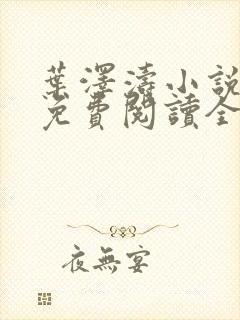 葉澤濤小說
免費閱讀全
夜無宴